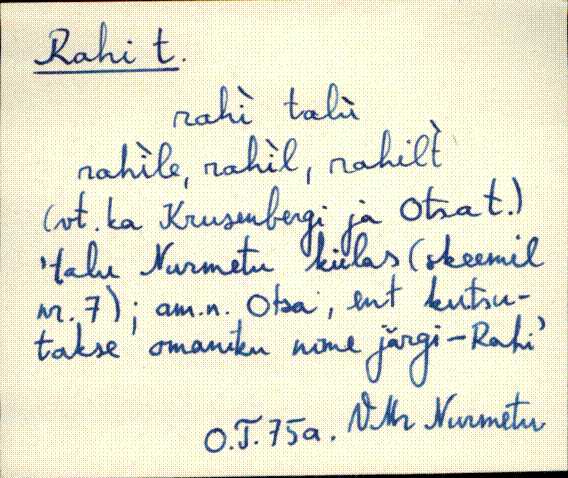 Rahi t.
rahì talù
rahìle, rahìl, rahilt̀
(vt. ka Krusenbergi ja Otsa t.)
'talu Nurmetu külas (skeemil
nr. 7); am.n. Otsa, ent kutsu-
takse omaniku nime järgi - Rahi'
O.T. 75a. VMr Nurmetu